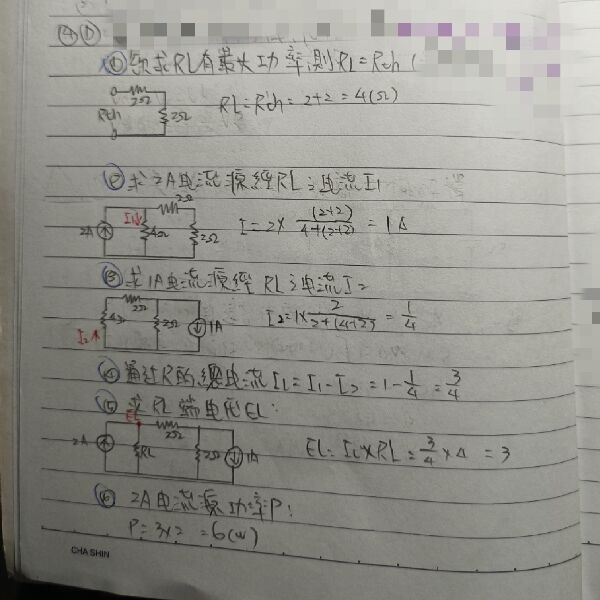 ④ ①:
① 須求RL有最大功率,則RL=Rth (
a 2Ω
Rth 2Ω RL=Rth=2+2=4(Ω)
b
② 求2A電流源經RL之電流I1
2Ω
2A I1↓ 4Ω 2Ω I=2×(2+2)/(4+(2+2))=1A
③ 求1A電流源經RL之電流I2
2Ω
I2↑ 4Ω 2Ω 1A I2=1×2/(2+(4+2))=1/4
④ 通過R的總電流I1=I1-I2=1-1/4=3/4
⑤ 求RL端電壓EL:
EL 2Ω
2A RL 2Ω 1A EL=IL×RL=3/4×4=3
⑥ 2A電流源功率P:
P=3×2=6(W)
CHA SHIN